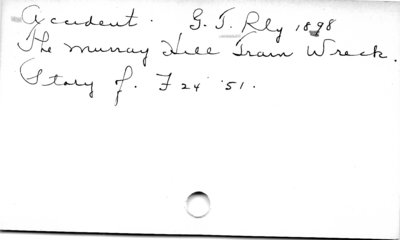 Accident. G. T. Rly 1898
The Murray Hill Train Wreck.
Story of. F 24 '51.